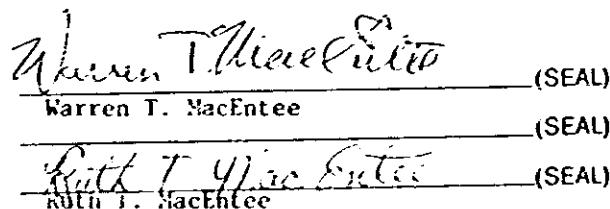 Warren T. MacEntee
(SEAL)
Warren T. MacEntee
(SEAL)
Ruth T. MacEntee
(SEAL)
Ruth T. MacEntee